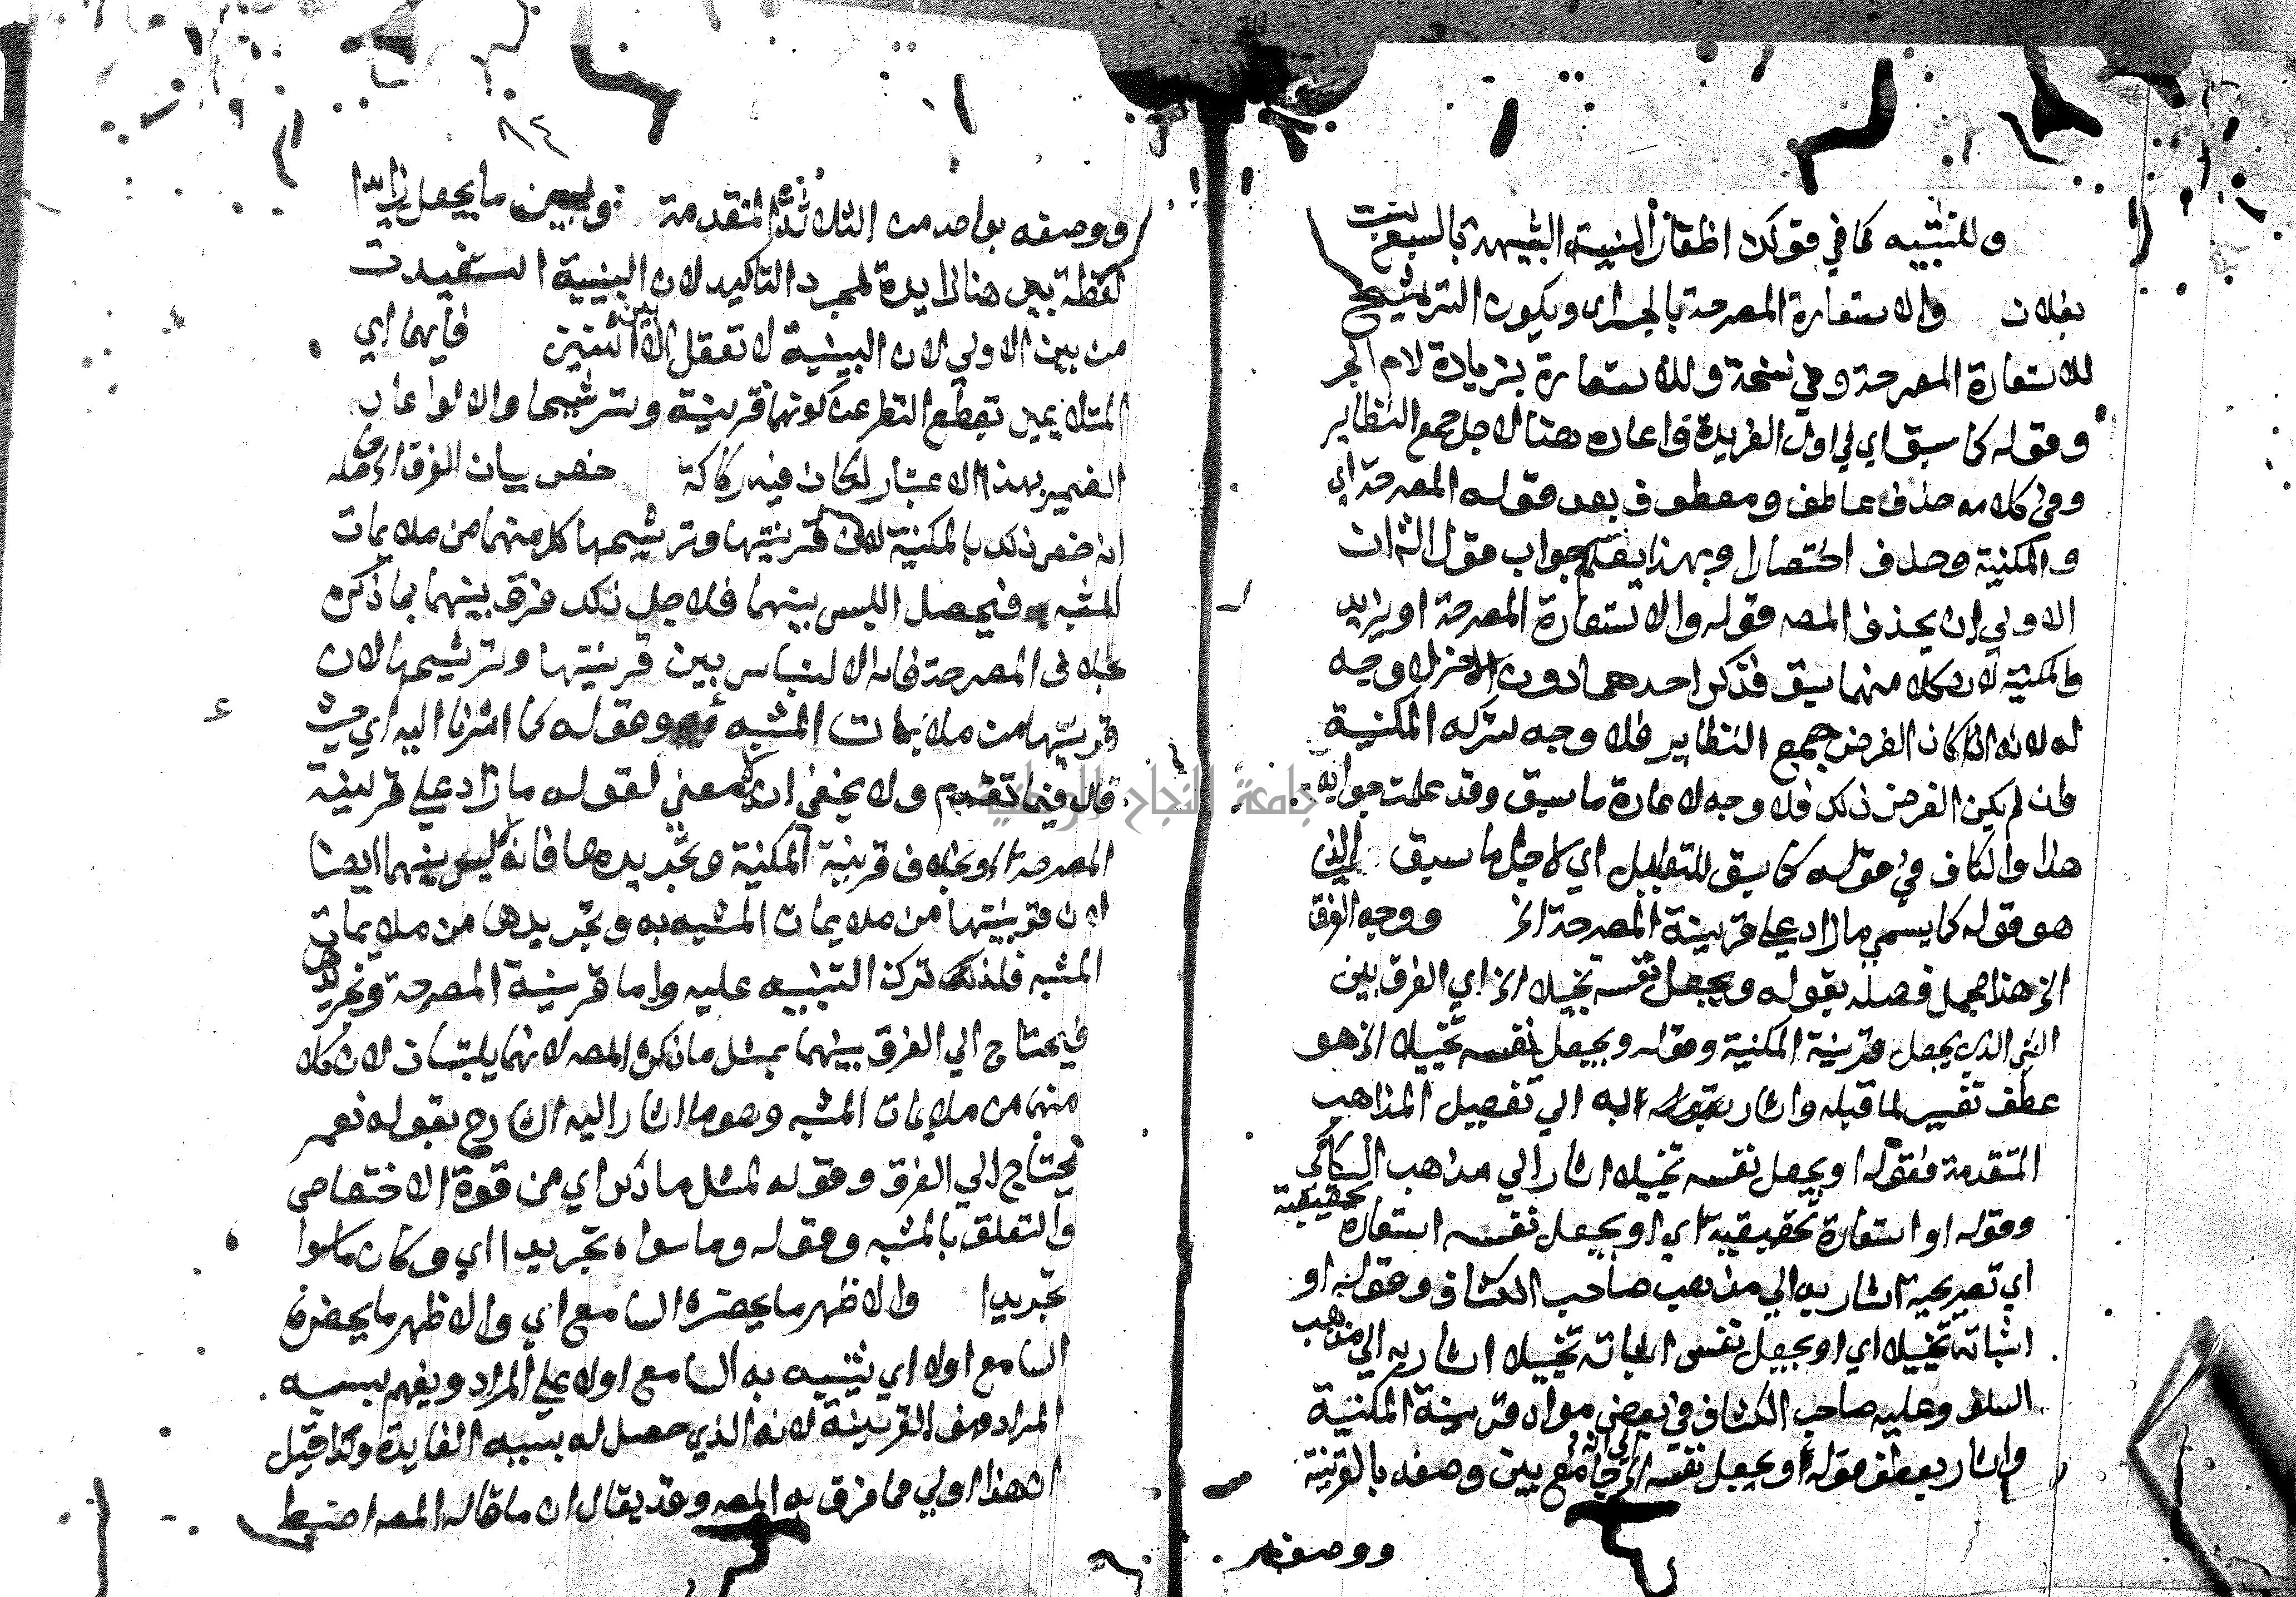 وللتشبيه كما في قولك اظفار المنية الشبيهة بالسبع نشبت
بفلان والاستعارة المصرحة بالجر اي ويكون الترشيح
للاستعارة المصرحة وفي نسخة وللاستعارة بزيادة لام الجر
وقوله كما سبق اي في اول الفريدة فاعاده هنا لاجل جمع النظاير
وفي كلامه حذف عاطف ومعطوف بعد قوله المصرحة اي
والمكنية وحذف اختصارا وبهذا يعلم جواب قول الش ان
الاولي ان يحذف المصه قوله والاستعارة المصرحة او يزيد
والمكنية لان كلا منهما سبق فذكر احدهما دون الاخر لا وجه
له لانه ان كان الغرض جمع النظاير فلا وجه لتركه المكنية
وان لم يكن الغرض ذلك فلا وجه لاعادة ما سبق وقد علمت جوابه
هذا والكاف في قوله كما سبق للتعليل اي لاجل ما سبق الذي
هو قوله كما يسمي ما زاد علي قرينة المصرحة الخ ووجه الفرق
الخ هذا مجمل فصله بقوله ويجعل نفسه تخييلا الخ اي الفرق بين
الشي الذي يجعل قرينة المكنية وقوله ويجعل نفسه تخييلا الخ هو
عطف تفسير لما قبله واشار بقوله الي تفصيل المذاهب
المتقدمة فقوله او يجعل نفسه تخييلا اشار الي مذهب السكاكي
وقوله او استعارة تحقيقية اي او يجعل نفسه استعارة تحقيقية
اي تصريحية اشار به الي مذهب صاحب الكشاف وقوله او
اثباته تخييلا اي او يجعل نفس اثباته تخييلا اشار به الي مذهب
السلف وعليه صاحب الكشاف في بعض مواد قرينة المكنية
واشار بعطف قوله او يجعل نفسه الخ الي انه جامع بين وصفه بالقرينة
ووصفه
٨٤
ووصفه بواحد من الثلاثة المتقدمة وبين ما يجعل زايدا
لفظة بين هنا زايدة لمجرد التاكيد لان البينية استفيدت
من بين الاولي لان البينية لا تعقل الا بين اثنين فايهما اي
الملايمين تقطع النظر عن كونهما قرينة وترشيحا والا لو اعاد
الضمير بهذا الاعتبار لكان فيه ركاكة خص بيان الفرق الخ
انه خص ذلك بالمكنية لان قرينتها وترشيحها كل منهما من ملايمات
المشبه به فيحصل اللبس بينهما فلاجل ذلك فرق بينهما بما ذكره
بخلاف المصرحة فانه لا التباس بين قرينتها وترشيحها لان
قرينتها من ملايمات المشبه وقوله كما اشرنا اليه اي حيث
قال فيما تقدم ولا يخفى انه لا معني لقوله ما زاد علي قرينة
المصرحة الخ وبخلاف قرينة المكنية وتجريدها فانه ليس بينهما ايضا
لان قرينتها من ملايمات المشبه به وتجريدها من ملايمات
المشبه فلذلك ترك التنبيه عليه واما قرينة المصرحة وتجريدها
فيحتاج الي الفرق بينهما بمثل ما ذكره المصه لانهما يلتبسان لان كلا
منهما من ملايمات المشبه وهو ما اشار اليه الشارح بقوله نعم
يحتاج الي الفرق وقوله لمثل ما ذكر اي من قوة الاختصاص
والتعلق بالمشبه وقوله وما سواه تجريدا اي وكان ما سواه
تجريدا والاظهر ما يحضره السامع اي والاظهر ما يحضره
السامع اولا اي يتنبه به السامع اولا علي المراد ويفهم بسببه
المراد هو القرينة لانه الذي حصل له بسببه الفايدة وكذا قيل
ان هذا اولي مما فرق به المصه وقد يقال ان ما قاله المصه اضبط
جامعة النجاح الوطنية